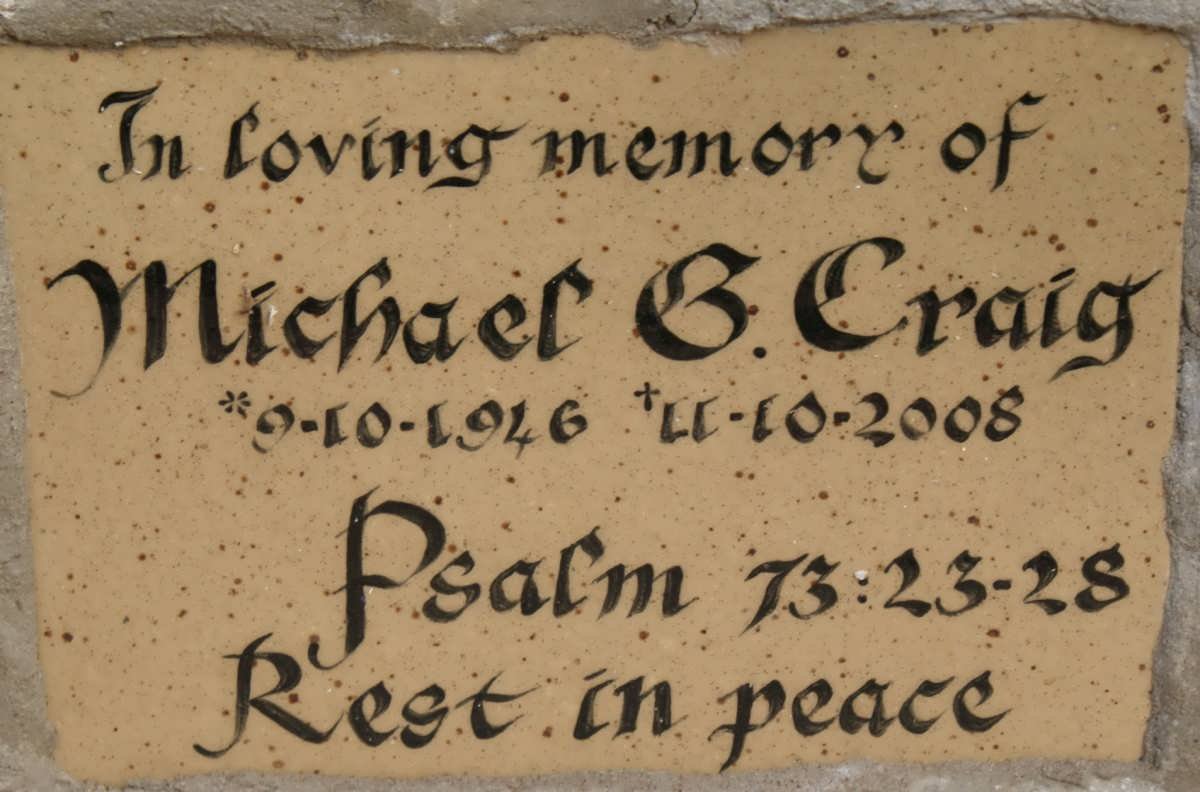 In loving memory of
Michael G. Craig
*9-10-1946 †11-10-2008
Psalm 73:23-28
Rest in peace